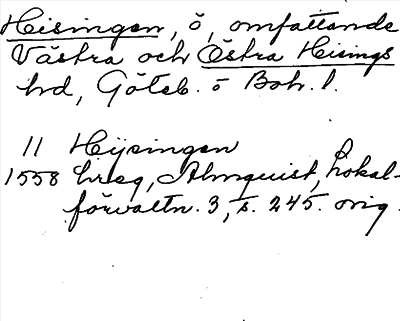 Hisingen, ö, omfattande
Västra och Östra Hisings
hd, Göteb. o Boh. l.
11 Hijsingen
1558 breg, Almquist, Lokal-
förvaltn. 3, s. 245. orig.